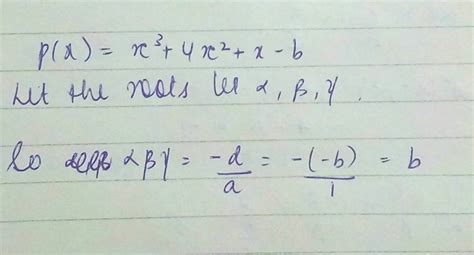 p(x) = x³ + 4x² + x - b
Let the roots be α, β, γ.
So αβγ = -d/a = -(-b)/1 = b